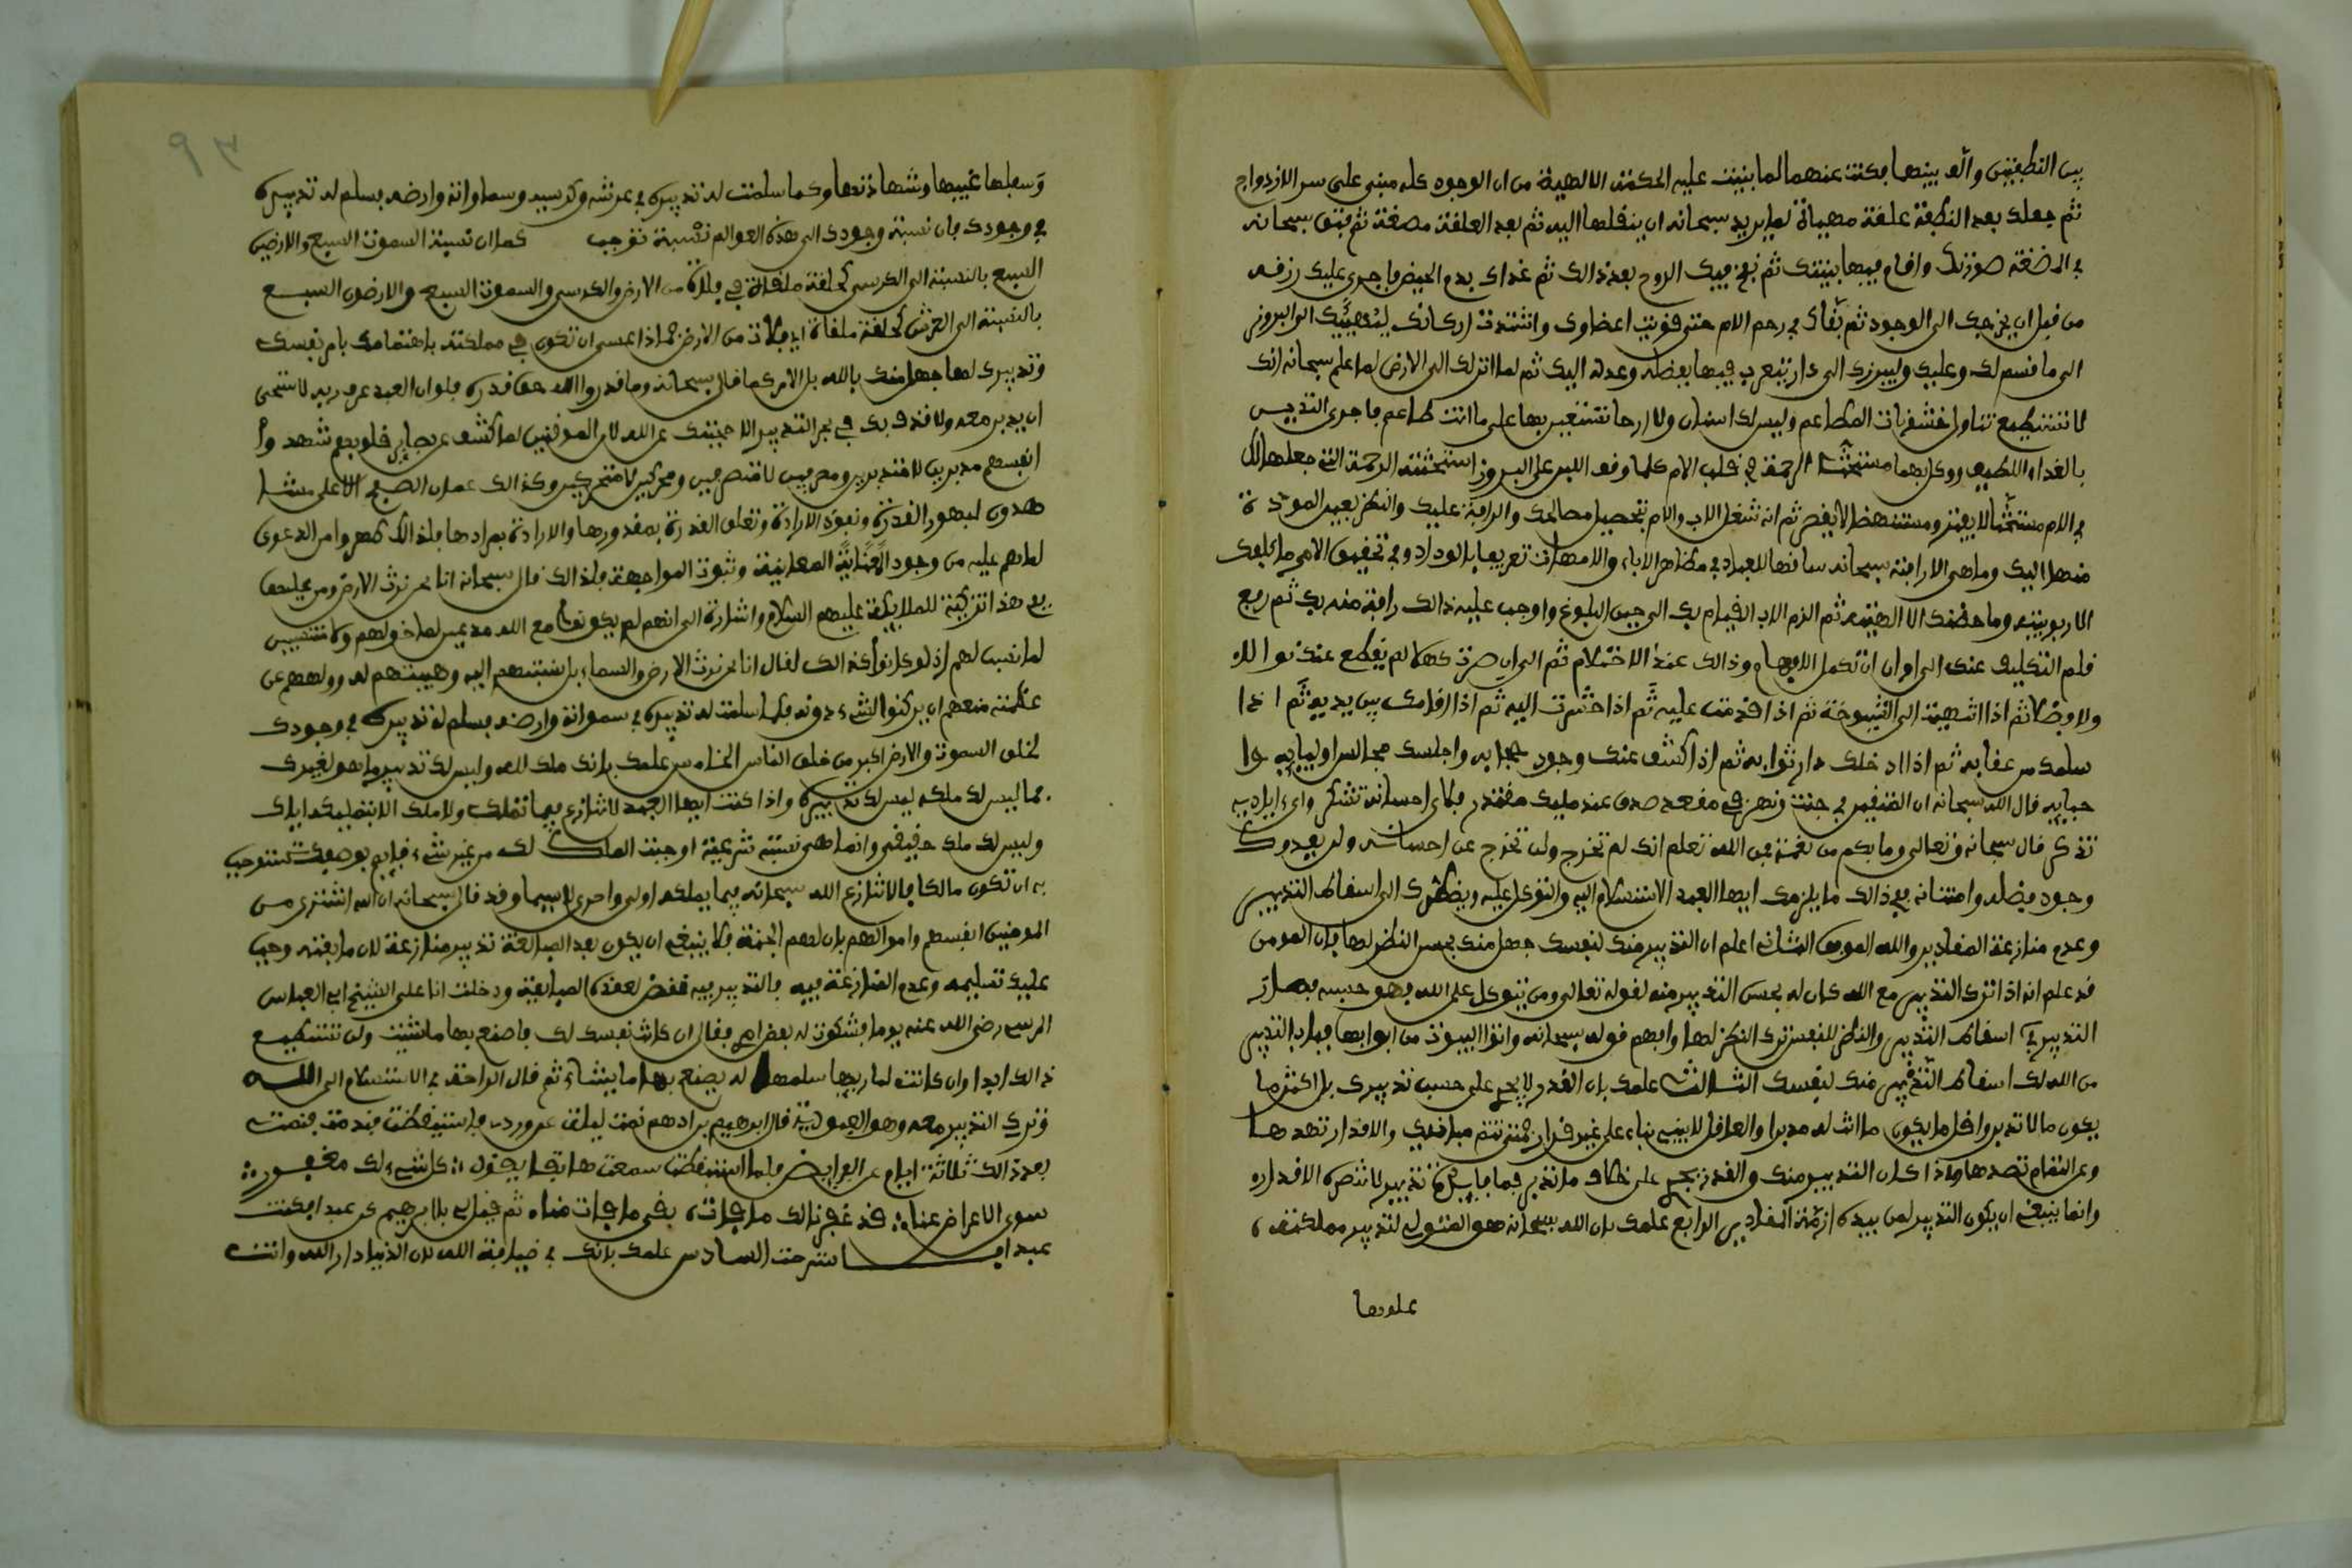 بين النطفتين والف بينهما فكنت عنهما لما بنيت عليه الحكمة الالهية من ان الوجود كله مبني على سر الازدواج
ثم جعلك بعد النطفة علقة مهياة لما يريد سبحانه ان ينقلها اليه ثم بعد العلقة مضغة ثم فتق سبحانه
في المضغة صورتك واقام فيها بنيتك ثم نفخ فيك الروح بعد ذالك ثم غذاك بدم الحيض فاجرى عليك رزقه
من قبل ان يخرجك الى الوجود ثم بقاك في رحم الام حتى قويت اعضاوك واشتدت اركانك ليهيئك الى البروز
الى ما قسم لك وعليك وليبرزك الى دار يتعرف فيها بفضله وعدله اليك ثم لما انزلك الى الارض لما علم سبحانه انك
لا تستطيع تناول خشونات المطاعم وليس لك اسنان ولا ارحا تستعين بها على ما انت طاعم فاجرى الثديين
بالغذاء اللطيف ووكل بهما مستحث الرحمة في قلب الام كلما وقف اللبن على البروز استحثته الرحمة التي جعلها لك
في الام مستحثا لا يفتر ومستنهضا لا يقصر ثم انه شغل الاب والام بتحصيل مصالحك والرافة عليك والنظر بعين المودة
منهما اليك وما هي الا رافته سبحانه ساقها للعباد في مظاهر الاباء والامهات تعريفا بالوداد وفي تحقيق الامر ما كفلك
الا ربوبيته وما حضنك الا الهيته ثم الزم الاب القيام بك الى حين البلوغ واوجب عليه ذالك رافة منه بك ثم رفع
قلم التكليف عنك الى اوان ان تكمل الافهام وذالك عند الاحتلام ثم الى ان صرت كهلا لم يقطع عنك نوالا
ولا فضلا ثم اذا انتهيت الى الشيخوخة ثم اذا قدمت عليه ثم اذا حشرت اليه ثم اذا اقامك بين يديه ثم اذا
سلمك من عقابه ثم اذا ادخلك دار ثوابه ثم اذا كشف عنك وجود حجابه واجلسك مجالس اوليايه وا
حبابه قال الله سبحانه ان المتقين في جنت ونهر في مقعد صدق عند مليك مقتدر فلاي احسانه تشكر واي اياديه
تذكر قال سبحانه وتعالى وما بكم من نعمة فمن الله تعلم انك لم تخرج ولن تخرج عن احسانه ولن يعدوك
وجود فضله وامتنانه فمع ذالك ما يلزمك ايها العبد الاستسلام اليه والتوكل عليه ويضطرك الى اسقاط التدبير
وعدم منازعة المقادير والله الموفق الثاني اعلم ان التدبير منك لنفسك جهل منك بحسن النظر لها فان المومن
قد علم انه اذا ترك التدبير مع الله كان له بحسن التدبير منه لقوله تعالى ومن يتوكل على الله فهو حسبه فصار
التدبير في اسقاط التدبير والنظر للنفس ترك النظر لها وافهم قوله سبحانه واتوا البيوت من ابوابها فباب التدبير
من الله لك اسقاط التدبير منك لنفسك الثالث علمك بان القدر لا يجري على حسب تدبيرك بل اكثر ما
يكون ما لا تدبر واقل ما يكون ما انت له مدبرا والعاقل لا يبني بناء على غير قرار فمتى تتم مبانيك والاقدار تهدها
وعن التمام تصدها واذا كان التدبير منك والقدر يجري على خلاف ما تدبر فما فايدة تدبير لا تنصره الاقدار
وانما ينبغي ان يكون التدبير لمن بيده ازمة المقادير الرابع علمك بان الله سبحانه هو المتولي لتدبير مملكته
علوها
وسفلها غيبها وشهادتها وكما سلمت له تدبيره في عرشه وكرسيه وسماواته وارضه فسلم له تدبيره
في وجودك فان نسبة وجودك الى هذه العوالم نسبة توجب كما ان نسبة السموت السبع والارضين
السبع بالنسبة الى الكرسي كحلقة ملقاة في فلاة من الارض والكرسي والسموت السبع والارضون السبع
بالنسبة الى العرش كحلقة ملقاة في فلاة من الارض فماذا عسى ان تكون في مملكته فاهتمامك بامر نفسك
وتدبيرك لها جهل منك بالله بل الامر كما قال سبحانه وما قدروا الله حق قدره فلو ان العبد عرف ربه لاستحى
ان يدبر معه ولا قذف بك في بحر التدبير الا حجبتك عن الله لان الموقنين لما كشف عن بصاير قلوبهم شهدوا
انفسهم مدبرين لا مدبرين ومصرفين لا متصرفين ومحركين لا متحركين وكذالك عمار الصفيح الاعلى مشا
هدون لظهور القدرة ونفوذ الارادة وتعلق القدرة بمقدورها والارادة بمرادها فلذالك طهروا من الدعوى
لما هم عليه من وجود المعاينة وثبوت المواجهة فلذالك قال سبحانه انا نحن نرث الارض ومن عليها
ففي هذا تزكية للملايكة عليهم السلام واشارة الى انهم لم يكونوا مع الله مدعين لما خولهم ولا منتسبين
لما نسب لهم اذ لو كانوا كذالك لقال انا نحن نرث الارض والسماء بل نسبتهم اليه وهيبتهم له وولههم من
عظمته منعهم ان يركنوا لشيء دونه فكما سلمت له تدبيره في سمواته وارضه فسلم له تدبيره في وجودك
لخلق السموت والارض اكبر من خلق الناس الخامس علمك بانك ملك لله وليس لك تدبير ما هو لغيرك
فما ليس لك ملكه ليس لك تدبيره واذا كنت ايها العبد لا تنازع فيما تملك ولا ملك الا بتمليكه اياك
وليس لك ملك حقيقي وانما هي نسبة شرعية اوجبت الملك لك من غير شيء قايم بوصفك تستوجب
به ان تكون مالكا فالا تنازع الله سبحانه فيما يملكه اولى واحرى لاسيما وقد قال سبحانه ان الله اشترى من
المومنين انفسهم واموالهم بان لهم الجنة فلا ينبغي ان يكون بعد المبايعة تدبير منازعة لان ما بعته وجب
عليك تسليمه وعدم المنازعة فيه فالتدبير فيه نقض لعقد المبايعة ودخلت انا على الشيخ ابي العباس
المرسي رضي الله عنه يوما فشكوت له بعض امري فقال ان كانت نفسك لك فاصنع بها ما شيت ولن تستطيع
ذالك ابدا وان كانت لباريها سلمها له يصنع بها ما يشاء ثم قال الراحة في الاستسلام الى الله
وترك التدبير معه وهو العبودية قال ابرهيم بن ادهم نمت ليلة عن وردي فاستيقظت فندمت فنمت
بعد ذالك ثلاثة ايام عن الفرايض فلما استيقظت سمعت هاتفا يقول كل شيء لك مغفور
سوى الاعراض عنا قد غفرنا لك ما فات بقي ما فات منا ثم قيل لي يا ابرهيم كن عبدا فكنت
عبدا فاسترحت السادس علمك بانك في ضيافة الله لان الدنيا دار الله وانت